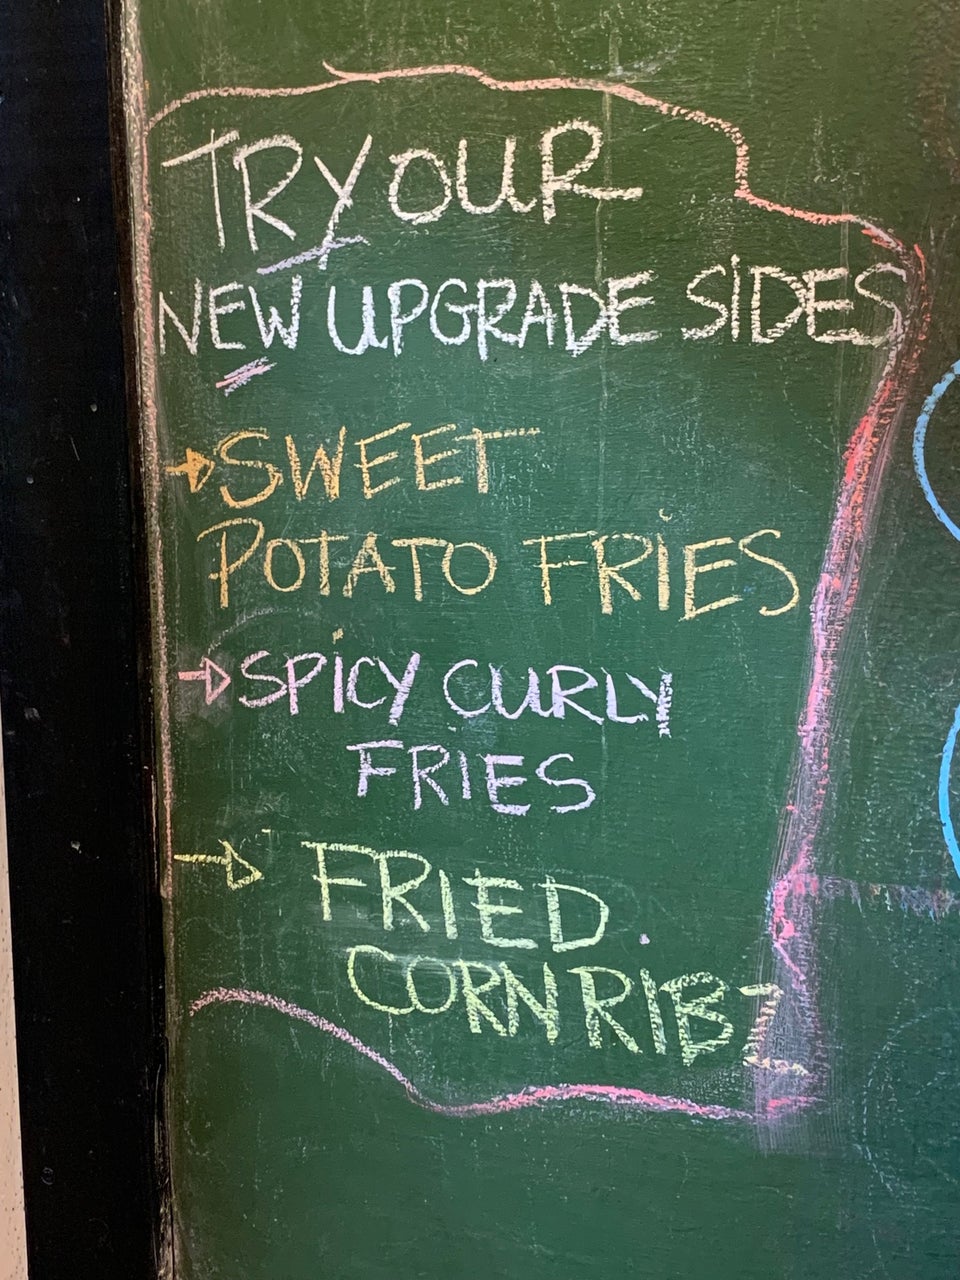 TRY OUR
NEW UPGRADE SIDES
SWEET
POTATO FRIES
SPICY CURLY
FRIES
FRIED
CORN RIBZ